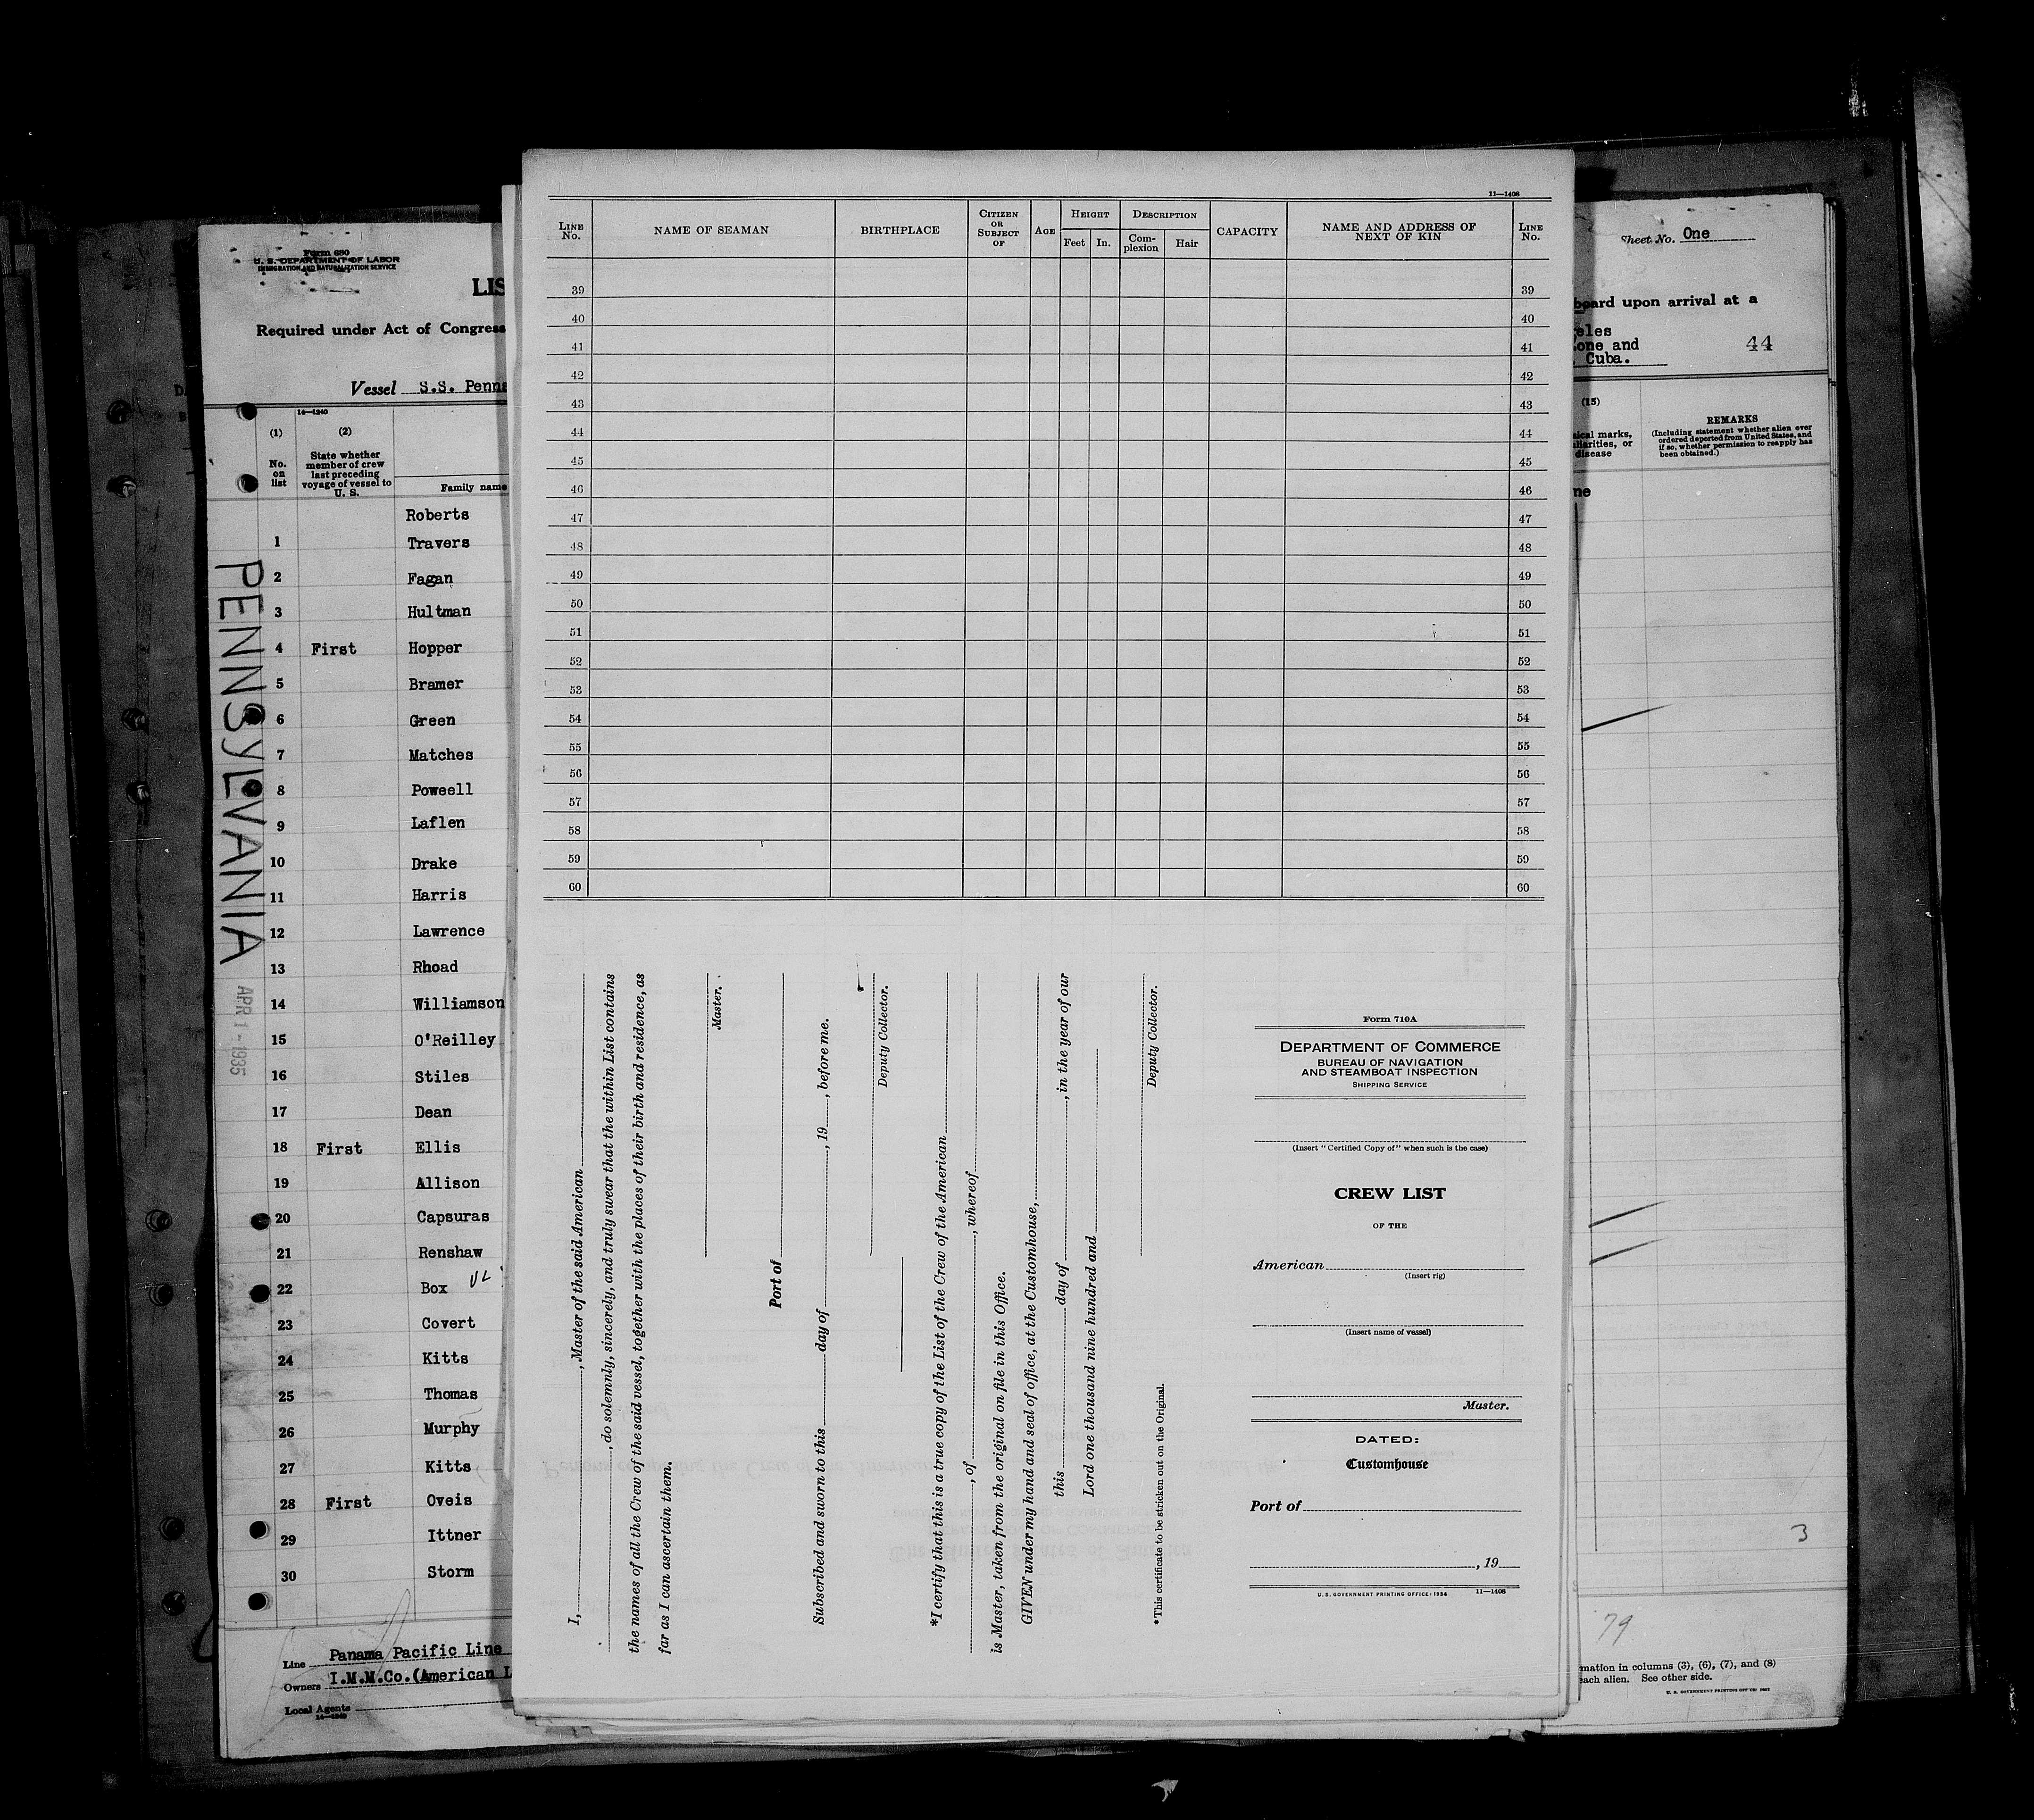 Form 680
U. S. DEPARTMENT OF LABOR
IMMIGRATION AND NATURALIZATION SERVICE
LIS
Required under Act of Congress
Vessel S.S. Penns
14—1240
(1)
No. on list
(2)
State whether member of crew last preceding voyage of vessel to U. S.
Family name
Roberts
1 Travers
2 Fagan
3 Hultman
4 First Hopper
5 Bramer
6 Green
7 Matches
8 Poweell
9 Laflen
10 Drake
11 Harris
12 Lawrence
13 Rhoad
14 Williamson
15 O'Reilley
16 Stiles
17 Dean
18 First Ellis
19 Allison
20 Capsuras
21 Renshaw
22 Box
23 Covert
24 Kitts
25 Thomas
26 Murphy
27 Kitts
28 First Oveis
29 Ittner
30 Storm
PENNSYLVANIA
APR 1 - 1935
Line Panama Pacific Line
Owners I.M.M.Co.(American L
Local Agents
14—1240
11—1408
LINE No. NAME OF SEAMAN BIRTHPLACE CITIZEN OR SUBJECT OF AGE HEIGHT Feet In. DESCRIPTION Com-plexion Hair CAPACITY NAME AND ADDRESS OF NEXT OF KIN LINE No.
39 39
40 40
41 41
42 42
43 43
44 44
45 45
46 46
47 47
48 48
49 49
50 50
51 51
52 52
53 53
54 54
55 55
56 56
57 57
58 58
59 59
60 60
I, , Master of the said American
, do solemnly, sincerely, and truly swear that the within List contains
the names of all the Crew of the said vessel, together with the places of their birth and residence, as
far as I can ascertain them.
Master.
Port of
Subscribed and sworn to this day of , 19 , before me.
Deputy Collector.
*I certify that this is a true copy of the List of the Crew of the American
, of , whereof
is Master, taken from the original on file in this Office.
GIVEN under my hand and seal of office, at the Customhouse,
this day of , in the year of our
Lord one thousand nine hundred and
Deputy Collector.
*This certificate to be stricken out on the Original.
Form 710A
DEPARTMENT OF COMMERCE
BUREAU OF NAVIGATION
AND STEAMBOAT INSPECTION
SHIPPING SERVICE
(Insert "Certified Copy of" when such is the case)
CREW LIST
OF THE
American
(Insert rig)
(Insert name of vessel)
Master.
DATED:
Customhouse
Port of
, 19
U. S. GOVERNMENT PRINTING OFFICE: 1934 11—1408
Sheet No. One
board upon arrival at a
geles
Zone and
Cuba.
44
(15)
sical marks,
uliarities, or
disease
REMARKS
(Including statement whether alien ever
ordered deported from United States, and
if so, whether permission to reapply has
been obtained.)
ne
3
79
mation in columns (3), (6), (7), and (8)
each alien. See other side.